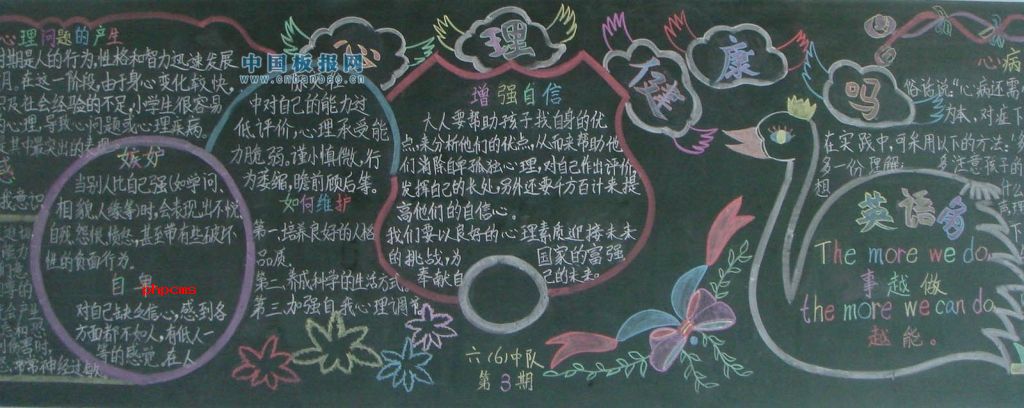 心理问题的产生
期是人的行为,性格和智力迅速发展
月。在这一阶段,由于身心变化较快,
社会经验的不足,小学生很容易
心理,导致心问题或心理疾病。
其中最突出的表现
嫉妒
当别人比自己强(如学问、
相貌、人缘等)时,会表现出不悦
自残、怨恨、愤怒,甚至带有些破坏
性的负面行为。
自卑
phpcms
对自己缺乏信心,感到各
方面都不如人,有低人一
等的感觉,在人
中国板报网
www.cnbanbao.cn
中对自己的能力过
低评价,心理承受能
力脆弱。谨小慎微,行
为萎缩,瞻前顾后等。
如何维护
第一、培养良好的人格
品质。
第二、养成科学的生活方式。
第三、加强自我心理调节
心理健康吗
增强自信
大人要帮助孩子找自身的优
点,来分析他们的优点,从而来帮助他
们消除自卑孤独心理,对自己作出评价
发挥自己的长处,另外还要千方百计来提
高他们的自信心。
我们要以良好的心理素质迎接未来
的挑战,为国家的富强
奉献自己的未来。
六(6)中队
第3期
心病
俗话说“心病还需
为本,对症下
在实践中,可采用以下的方法:
多一份理解:多注意孩子的
想
英语角
The more we do,
事越做
the more we can do
越能。